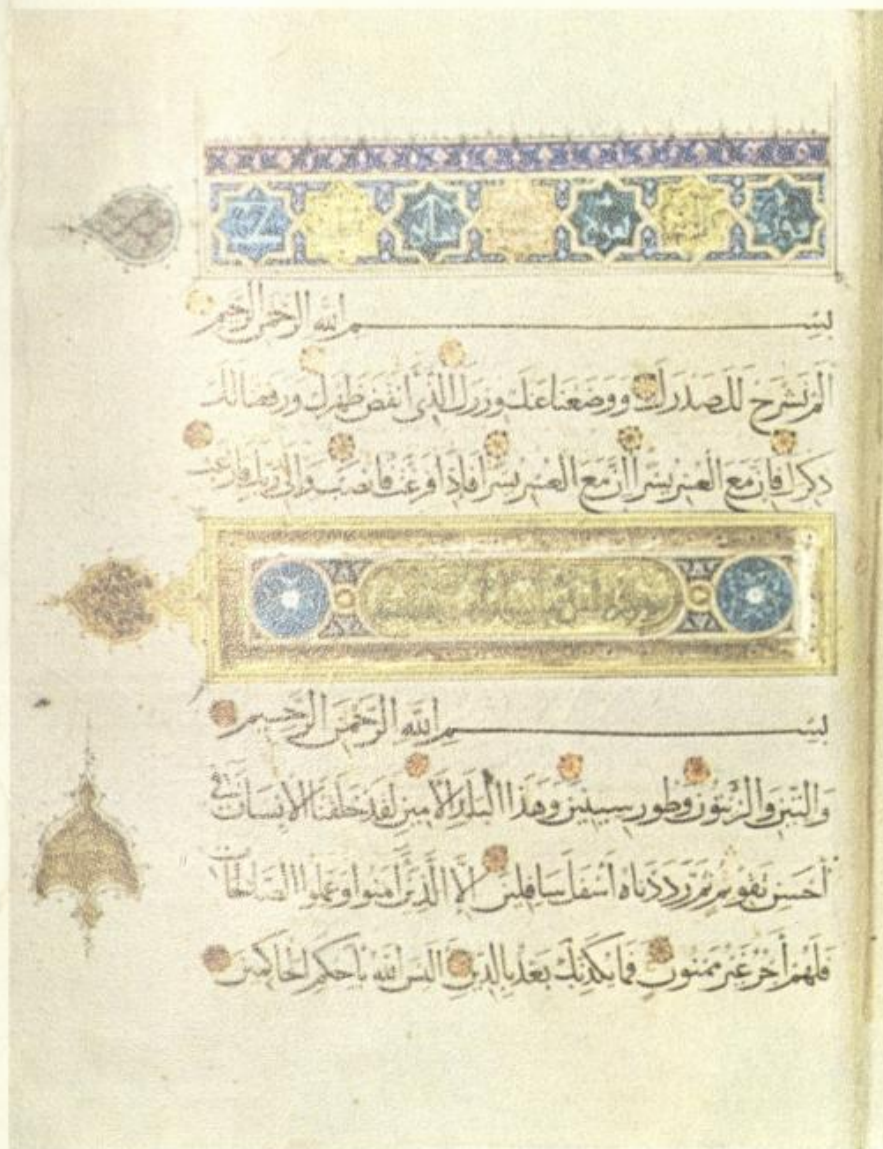 بسم الله الرحمن الرحيم
الم نشرح لك صدرك ووضعنا عنك وزرك الذي أنقض ظهرك ورفعنا لك
ذكرك فإن مع العسر يسرا إن مع العسر يسرا فإذا فرغت فانصب وإلى ربك فارغب
بسم الله الرحمن الرحيم
والتين والزيتون وطور سينين وهذا البلد الأمين لقد خلقنا الإنسان في
أحسن تقويم ثم رددناه أسفل سافلين إلا الذين آمنوا وعملوا الصالحات
فلهم أجر غير ممنون فما يكذبك بعد بالدين أليس الله بأحكم الحاكمين